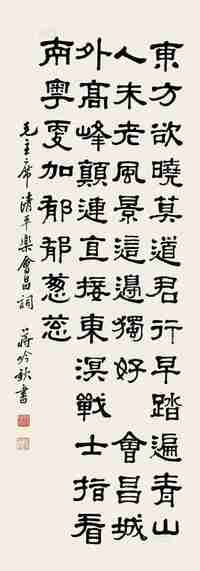 東方欲曉莫道君行早踏遍青山
人未老風景這邊獨好 會昌城
外高峰顛連直接東溟戰士指看
南粵更加郁郁葱葱
毛主席清平樂會昌詞 蔣吟秋書